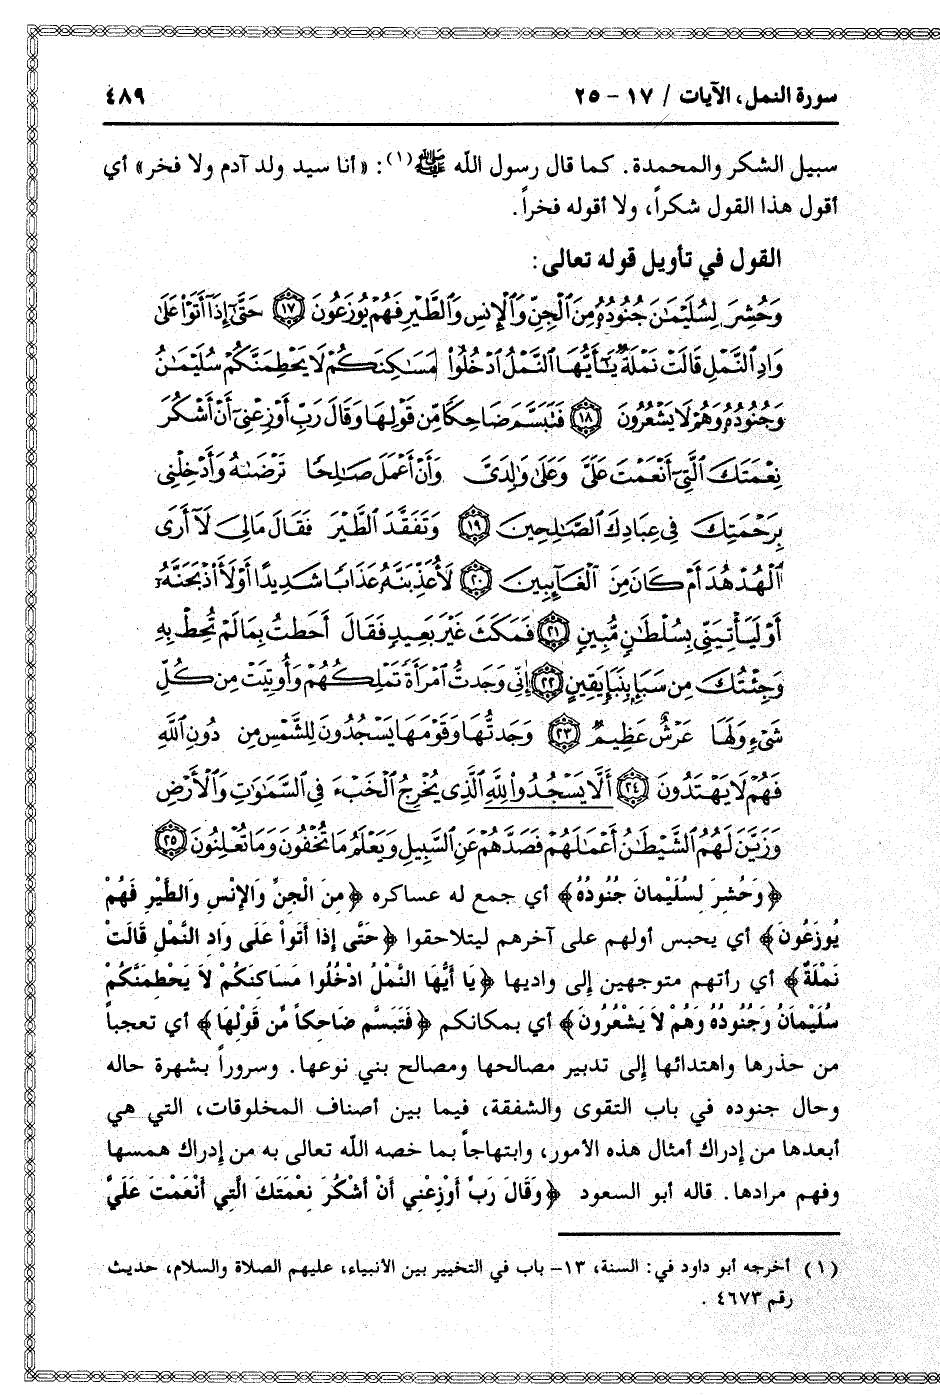 سورة النمل، الآيات / ١٧ - ٢٥ ٤٨٩
سبيل الشكر والمحمدة. كما قال رسول الله ﷺ(١): «أنا سيد ولد آدم ولا فخر» أي
أقول هذا القول شكراً، ولا أقوله فخراً.
القول في تأويل قوله تعالى:
وَحُشِرَ لِسُلَيْمَٰنَ جُنُودُهُۥ مِنَ ٱلْجِنِّ وَٱلْإِنسِ وَٱلطَّيْرِ فَهُمْ يُوزَعُونَ ﴿١٧﴾ حَتَّىٰٓ إِذَآ أَتَوْا۟ عَلَىٰ
وَادِ ٱلنَّمْلِ قَالَتْ نَمْلَةٌ يَٰٓأَيُّهَا ٱلنَّمْلُ ٱدْخُلُوا۟ مَسَٰكِنَكُمْ لَا يَحْطِمَنَّكُمْ سُلَيْمَٰنُ
وَجُنُودُهُۥ وَهُمْ لَا يَشْعُرُونَ ﴿١٨﴾ فَتَبَسَّمَ ضَاحِكًا مِّن قَوْلِهَا وَقَالَ رَبِّ أَوْزِعْنِىٓ أَنْ أَشْكُرَ
نِعْمَتَكَ ٱلَّتِىٓ أَنْعَمْتَ عَلَىَّ وَعَلَىٰ وَٰلِدَىَّ وَأَنْ أَعْمَلَ صَٰلِحًا تَرْضَىٰهُ وَأَدْخِلْنِى
بِرَحْمَتِكَ فِى عِبَادِكَ ٱلصَّٰلِحِينَ ﴿١٩﴾ وَتَفَقَّدَ ٱلطَّيْرَ فَقَالَ مَالِىَ لَآ أَرَى
ٱلْهُدْهُدَ أَمْ كَانَ مِنَ ٱلْغَآئِبِينَ ﴿٢٠﴾ لَأُعَذِّبَنَّهُۥ عَذَابًا شَدِيدًا أَوْ لَأَا۟ذْبَحَنَّهُۥٓ
أَوْ لَيَأْتِيَنِّى بِسُلْطَٰنٍ مُّبِينٍ ﴿٢١﴾ فَمَكَثَ غَيْرَ بَعِيدٍ فَقَالَ أَحَطتُ بِمَا لَمْ تُحِطْ بِهِۦ
وَجِئْتُكَ مِن سَبَإٍۭ بِنَبَإٍ يَقِينٍ ﴿٢٢﴾ إِنِّى وَجَدتُّ ٱمْرَأَةً تَمْلِكُهُمْ وَأُوتِيَتْ مِن كُلِّ
شَىْءٍ وَلَهَا عَرْشٌ عَظِيمٌ ﴿٢٣﴾ وَجَدتُّهَا وَقَوْمَهَا يَسْجُدُونَ لِلشَّمْسِ مِن دُونِ ٱللَّهِ
وَزَيَّنَ لَهُمُ ٱلشَّيْطَٰنُ أَعْمَٰلَهُمْ فَصَدَّهُمْ عَنِ ٱلسَّبِيلِ
فَهُمْ لَا يَهْتَدُونَ ﴿٢٤﴾ أَلَّا يَسْجُدُوا۟ لِلَّهِ ٱلَّذِى يُخْرِجُ ٱلْخَبْءَ فِى ٱلسَّمَٰوَٰتِ وَٱلْأَرْضِ
وَيَعْلَمُ مَا تُخْفُونَ وَمَا تُعْلِنُونَ ﴿٢٥﴾
﴿وَحُشِرَ لِسُلَيْمانَ جُنُودُهُ﴾ أي جمع له عساكره ﴿مِنَ الْجِنِّ وَالإِنْسِ وَالطَّيْرِ فَهُمْ
يُوزَعُونَ﴾ أي يحبس أولهم على آخرهم ليتلاحقوا ﴿حَتَّى إِذَا أَتَوْا عَلَى وَادِ النَّمْلِ قَالَتْ
نَمْلَةٌ﴾ أي رأتهم متوجهين إلى واديها ﴿يَا أَيُّهَا النَّمْلُ ادْخُلُوا مَسَاكِنَكُمْ لاَ يَحْطِمَنَّكُمْ
سُلَيْمانُ وَجُنُودُهُ وَهُمْ لاَ يَشْعُرُونَ﴾ أي بمكانكم ﴿فَتَبَسَّم ضَاحِكاً مِّن قَوْلِهَا﴾ أي تعجباً
من حذرها واهتدائها إلى تدبير مصالحها ومصالح بني نوعها. وسروراً بشهرة حاله
وحال جنوده في باب التقوى والشفقة، فيما بين أصناف المخلوقات، التي هي
أبعدها من إدراك أمثال هذه الأمور، وابتهاجاً بما خصه الله تعالى به من إدراك همسها
وفهم مرادها. قاله أبو السعود ﴿وَقَالَ رَبِّ أَوْزِعْنِي أَنْ أَشْكُرَ نِعْمَتَكَ الَّتِي أَنْعَمْتَ عَلَيَّ
(١) أخرجه أبو داود في: السنة، ١٣- باب في التخيير بين الأنبياء، عليهم الصلاة والسلام، حديث
رقم ٤٦٧٣ .